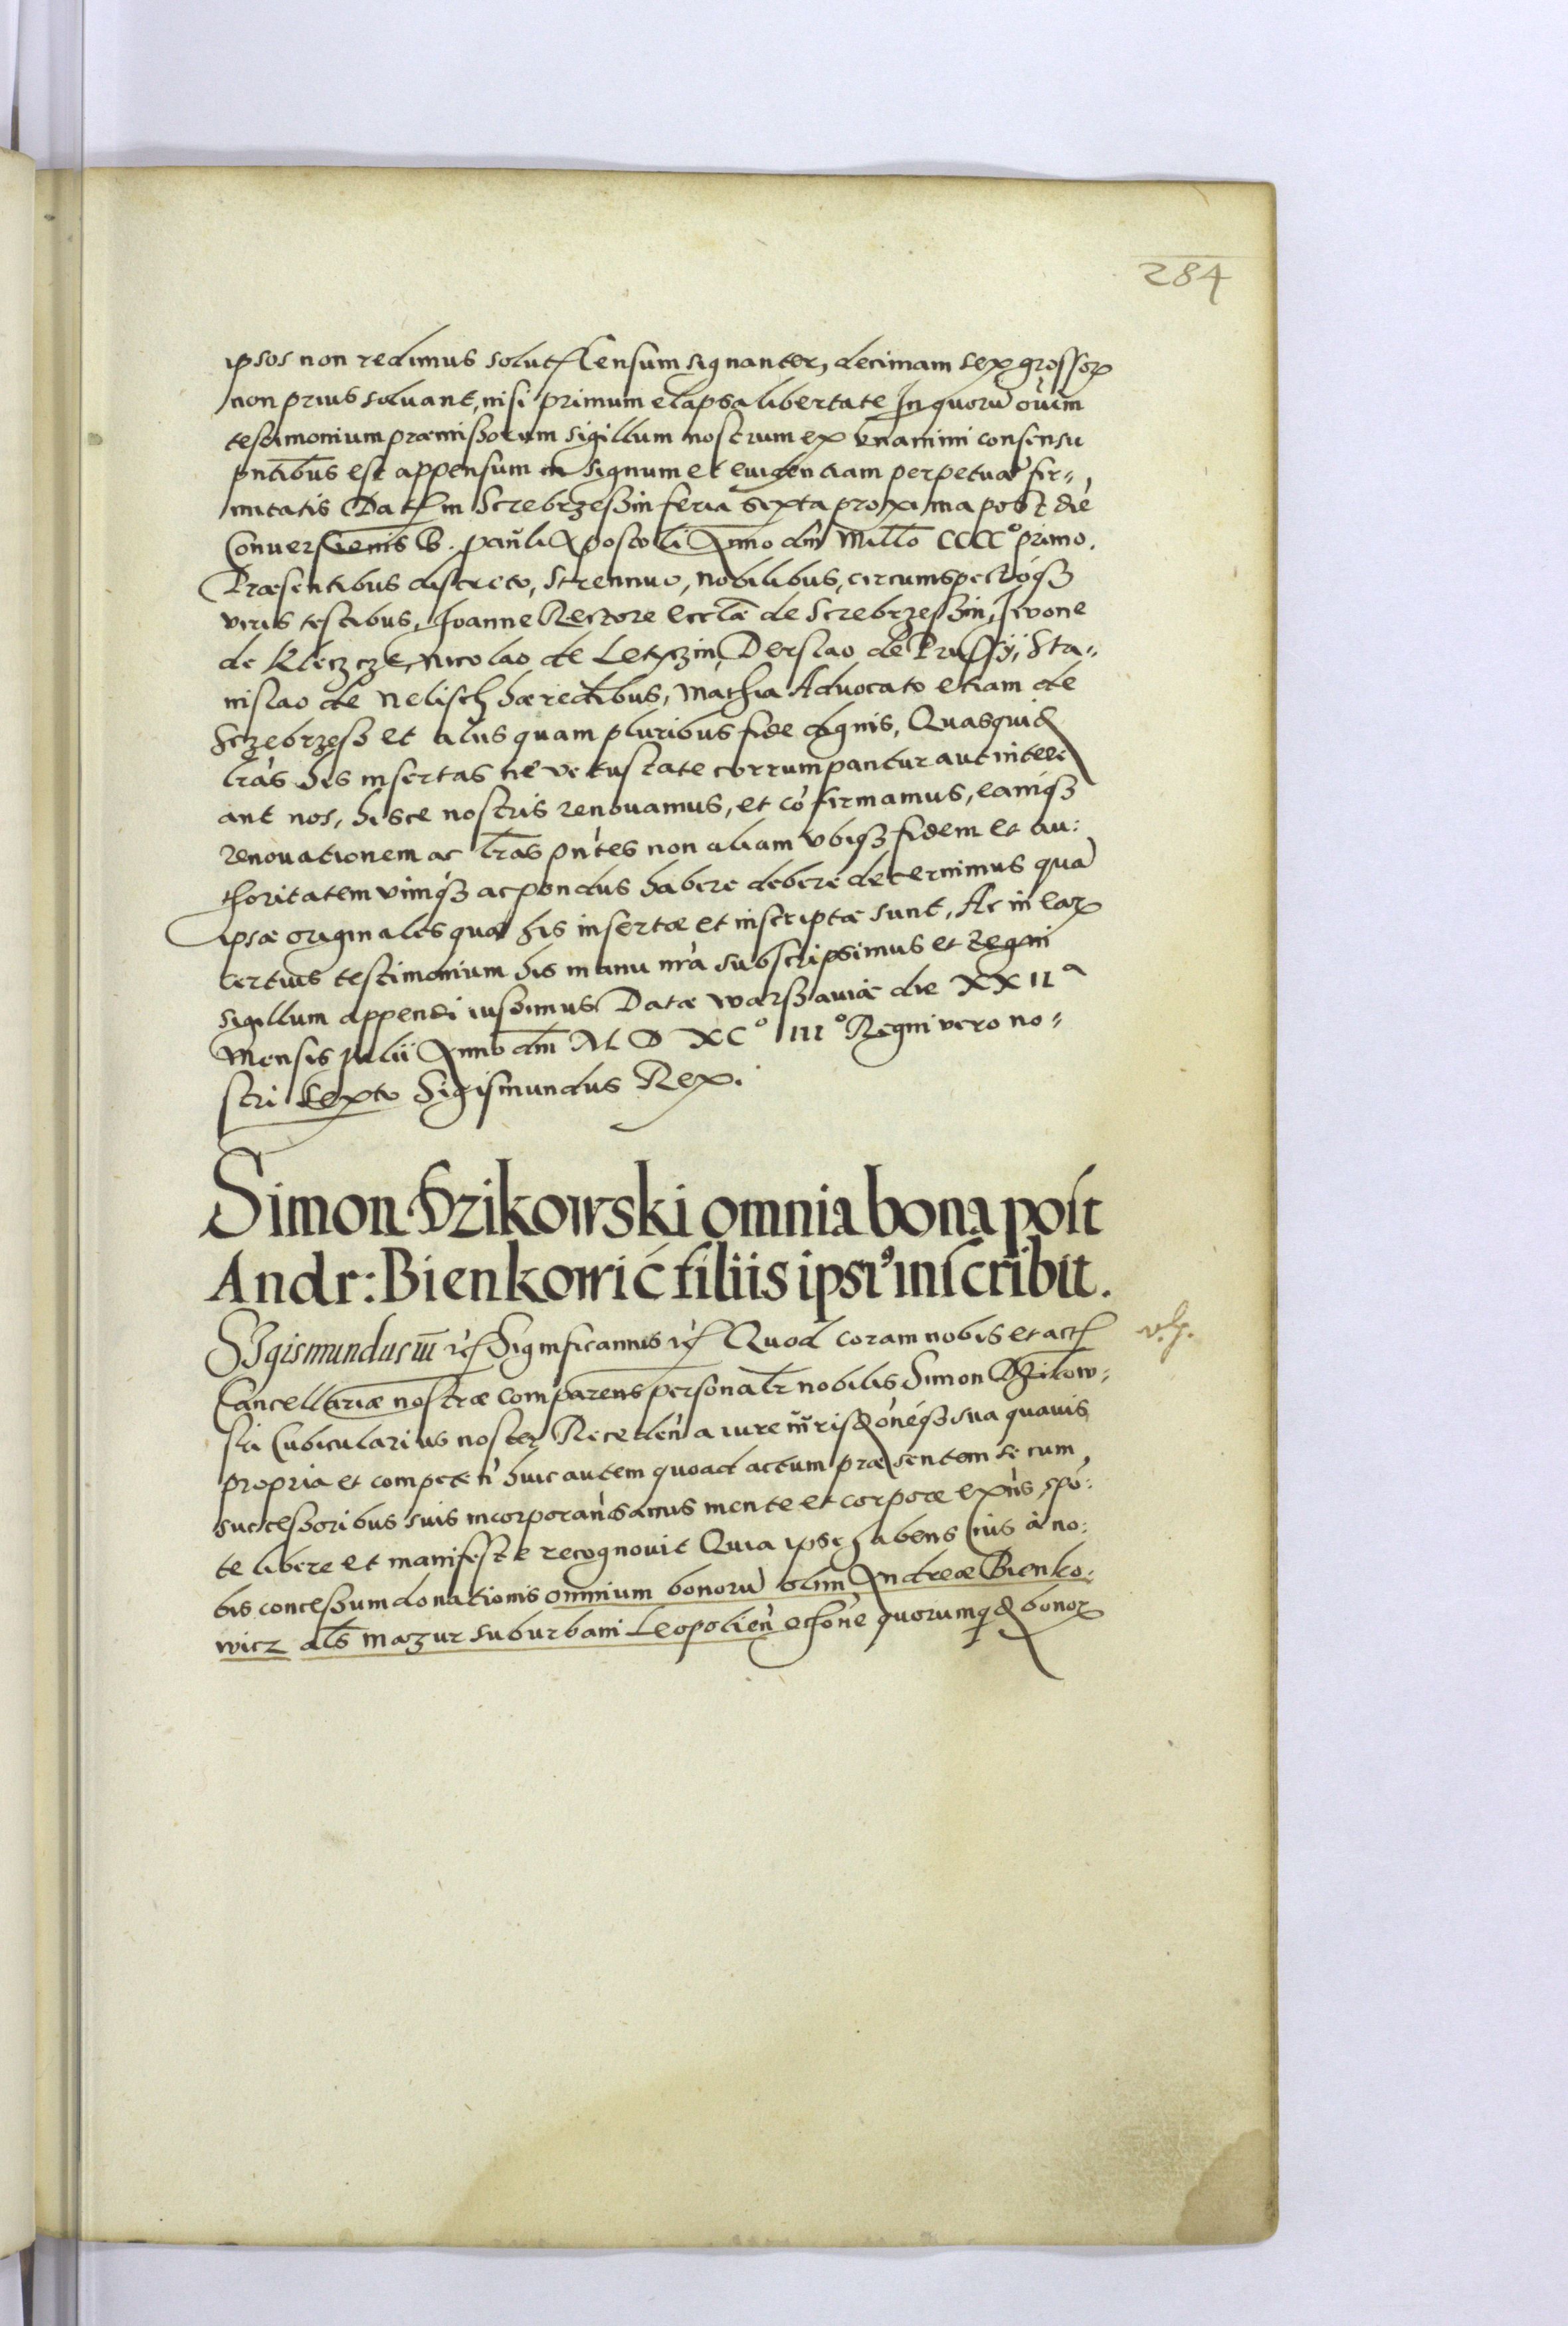 284
ipsos non redimus solut Censum signanter, decimam sex grossor
non prius solvant, nisi primum elapsa libertate In quorũ oĩum
testimonium præmissorum sigillum nostrum ex unanimi consensu
pntibus est appensum in signum et evidentiam perpetuæ fir-
mitatis Dat in Screbrzessin feria sexta proxima post diē
Conversionis B. Pauli Apostoli Anno dni Millo CCCC° primo.
Præsentibus discreto, strennuo, nobilibus, circumspectoqȝ
viris testibus, Joanne Rectore eccłæ de Screbrzessin, Jwone
de Kleczcze, Nicolao de Letxzin, Derslao de Prussy, Sta-
nislao de Nelisch hæredibus, Mathia Advocato etiam de
Sczebrzess et alys quam pluribus fide dignis, Quasquid
lràs his insertas ne vetustate corrumpantur aut intere
ant nos, hisce nostris renovamus, et cōfirmamus, eamqȝ
renovationem ac lras pñtes non aliam ubiqȝ fidem et au:
thoritatem vimqȝ ac pondus habere debere decernimus quā
ipsæ originales quæ his insertæ et inscriptæ sunt, Ac in ear
certius testimonium his manu nrà subscripsimus et Regni
sigillum appendi iussimus Datæ Warssaviæ die XXII a
Mensis Julii Anno dni M D XC° III° Regni vero no-
stri sexto Sigismundus Rex.
Simon Dzikowski omnia bona post
Andr: Bienkowić filiis ipsi9 inscribit.
SIgismundus III rc Significamus rc Quod coram nobis et act
Cancellariæ nostræ comparens personalr nobilis Simon Dzikow:
ski Cubicularius noster Receden a iure iurisdōneqȝ sua quavis
propria et competen huic autem quoad actum præsentem se cum
successoribus suis incorporañ sanus mente et corpore exñs, spō:
te libere et manifeste recognovit Quia ipse habens ius à no:
bis concessum donationis omnium bonorũ olim Andreæ Bienko:
wicz als Mazur suburbani Leopolien rone quorumqd bonor